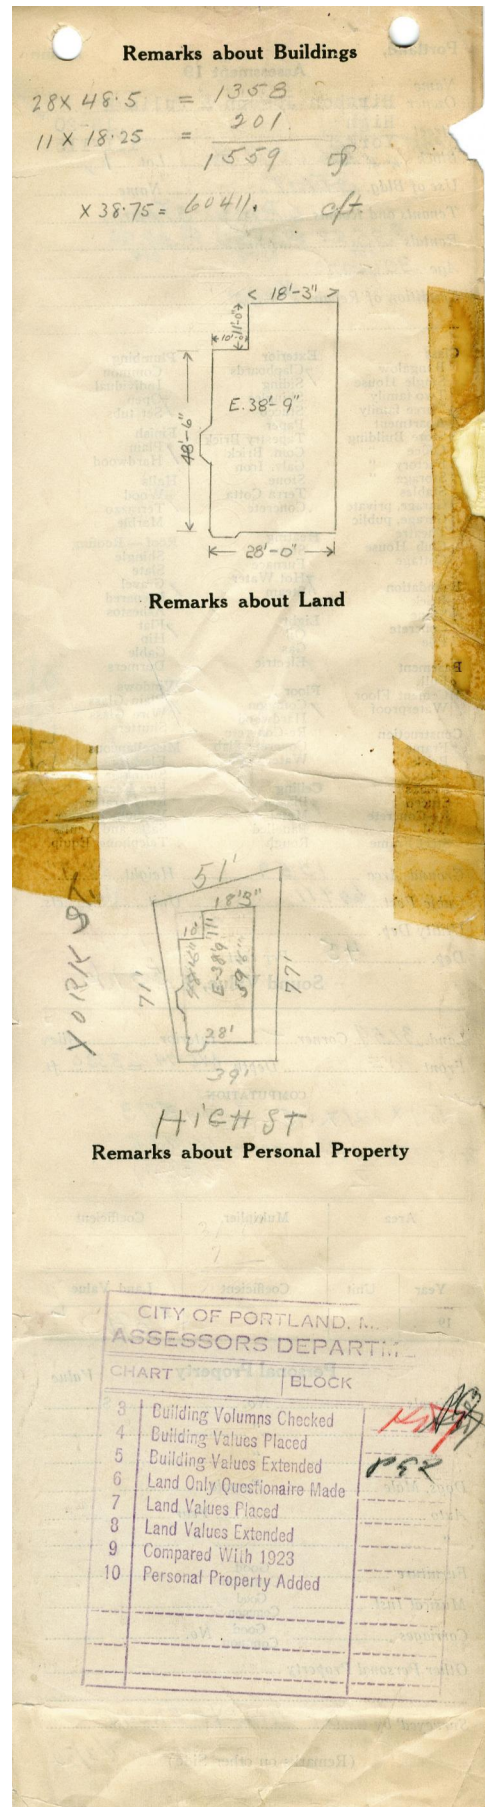 Remarks about Buildings
28 X 48.5 = 1358
11 X 18.25 = 201.
1559
X 38.75 = 60411. cft.
< 18'-3" >
11'-0"
10'
E. 38'-9"
48'-6"
28'-0"
Remarks about Land
51'
18'3"
10' 11'
YORK ST
71'
48'6"
E-38'9"
39'6"
77'
28'
39'
HIGH ST
Remarks about Personal Property
CITY OF PORTLAND, M
ASSESSORS DEPARTM
CHART BLOCK
3 Building Volumns Checked
4 Building Values Placed
5 Building Values Extended
6 Land Only Questionaire Made
7 Land Values Placed
8 Land Values Extended
9 Compared With 1923
10 Personal Property Added